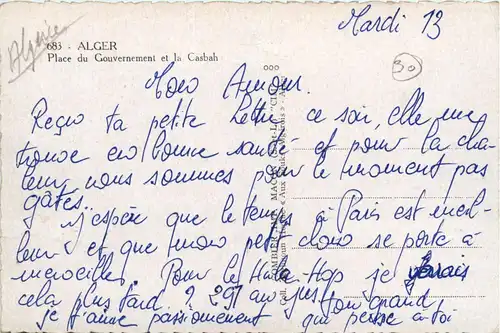 Algérie
683 - ALGER
Place du Gouvernement et la Casbah
Mardi 13
30
Mon Amour.
Reçu ta petite lettre ce soir, elle me
trouve en bonne santé et pour la cha-
leur nous sommes pour le moment pas
gâtés..
j'espère que le temps à Paris est meil-
leur et que mon petit chou se porte à
merveille. Pour le Hula-Hop je verrais
cela plus tard. 291 au jus
ton grand
je t'aime passionément qui pense à toi
COMBIER IMP. MACON